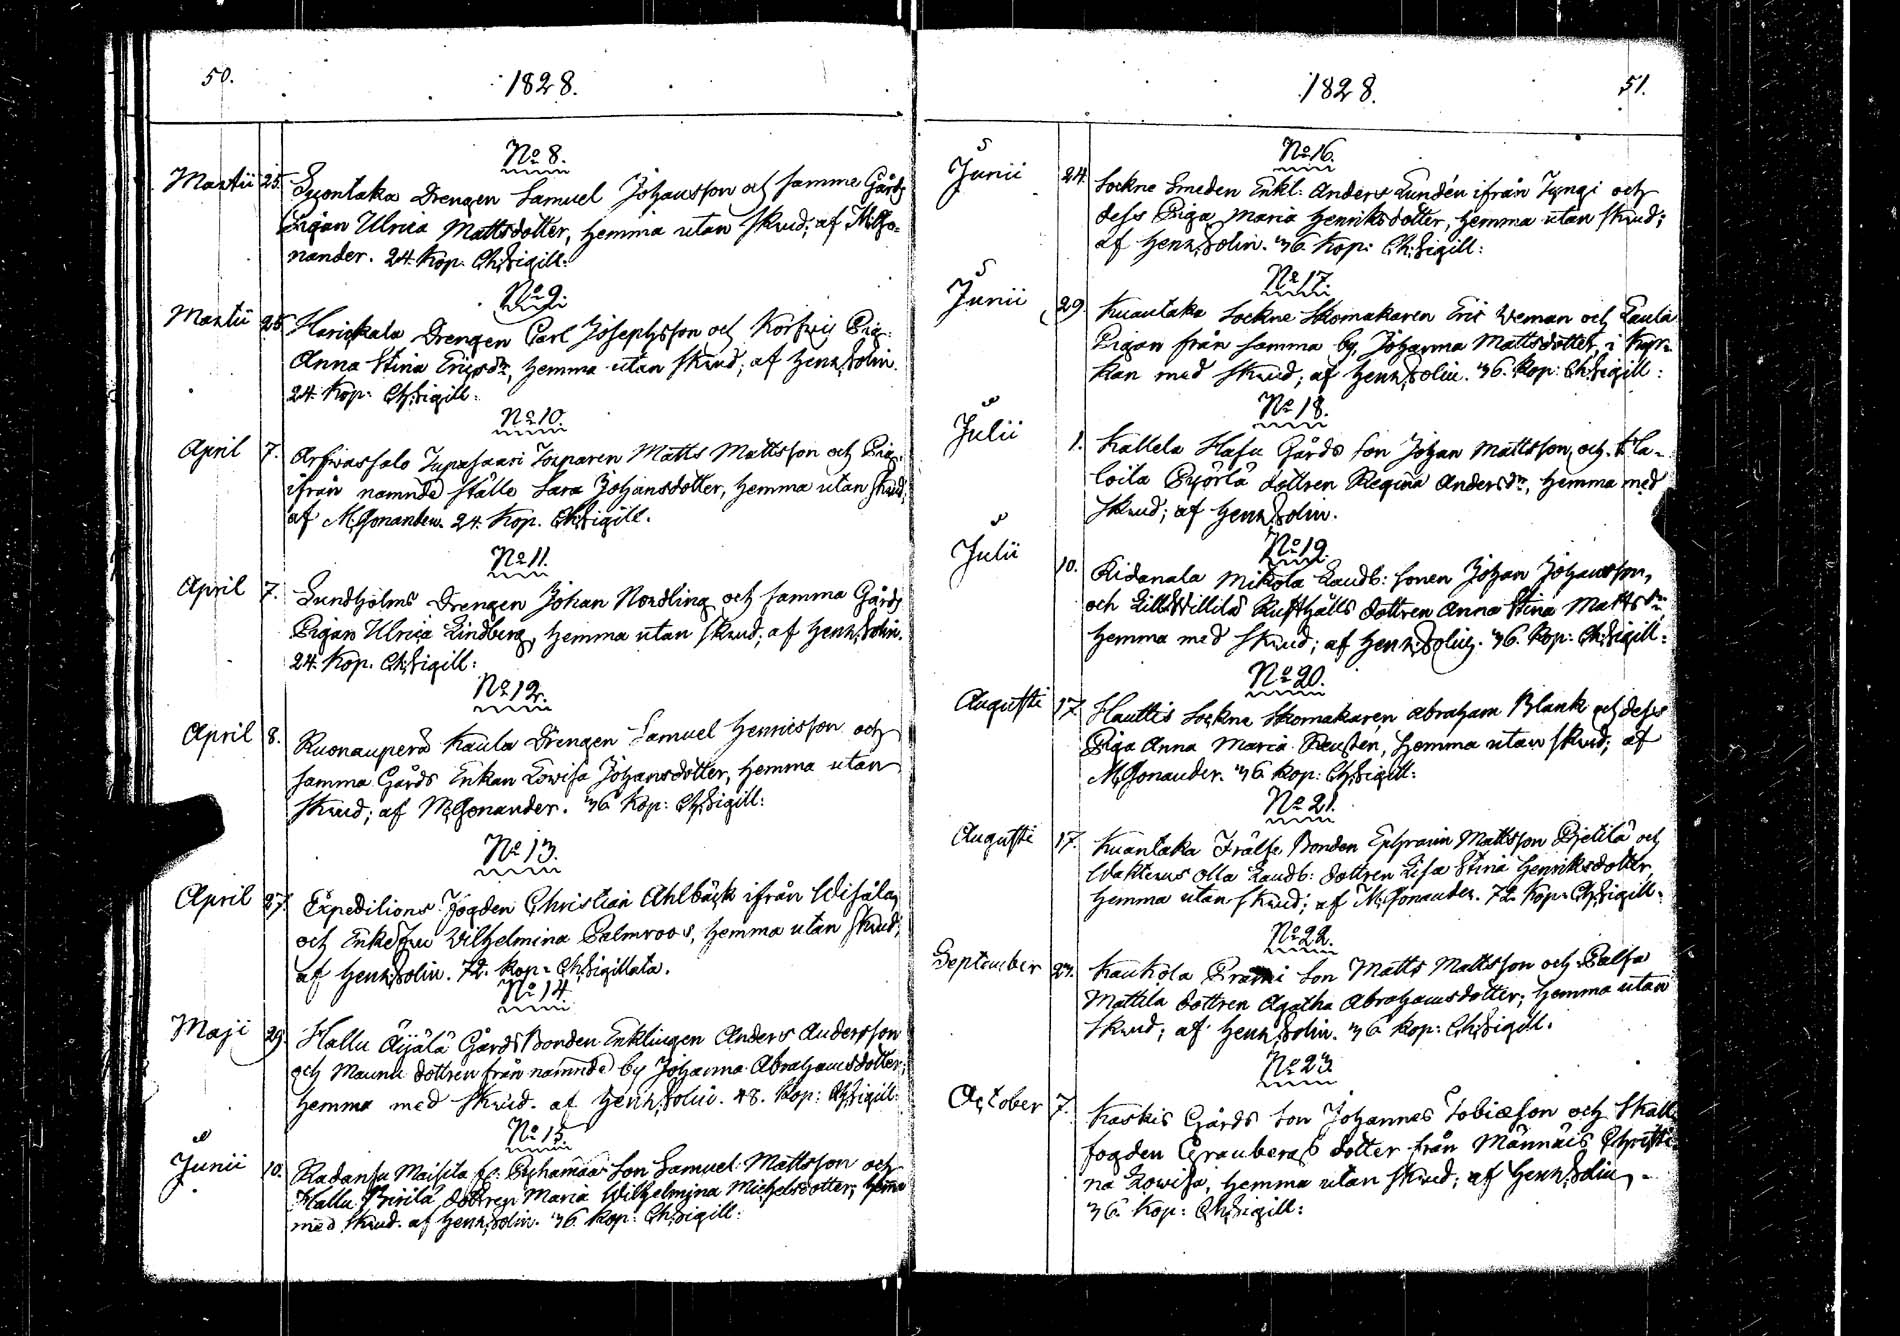 50.
1828.
No 8.
Martii 25. Suontaka Drengen Samuel Johansson och samma Gårds
Pigan Ulrica Mattsdotter, hemma utan skrud; af M. Go-
nander. 24. Kop: Ch. Sigill:
No 9.
Martii 25. Harickala Drengen Carl Josephsson och Korfvis Pig.
Anna Stina Ericsdr, hemma utan skrud; af Henr. Solin.
24. Kop: Ch. Sigill:
No 10.
April 7. Arfvassalo Jupasaari Torparen Matts Mattsson och Pig.
ifrån namnde ställe Sara Johansdotter, hemma utan skrud;
af M. Gonander. 24. Kop. Ch. Sigill.
No 11.
April 7. Lundholms Drengen Johan Nordling och samma Gårds
Pigan Ulrica Lindberg, hemma utan skrud; af Henr. Solin.
24. Kop. Ch. Sigill:
No 12.
April 8. Ruonauperä Kaula Drengen Samuel Henricsson och
samma Gårds Enkan Lowisa Johansdotter, hemma utan
skrud; af M. Gonander. 36. Kop: Ch. Sigill:
No 13.
April 27. Expeditions Fogden Christian Ahlbäck ifrån
och Enkefru Wilhelmina Palmroos, hemma utan skrud;
af Henr. Solin. 72. Kop: Ch. Sigillata.
No 14.
Maji 29. Hallu Äijälä Gårds Bonden Enklingen Anders Andersson
och Maunu dottren från namnde by Johanna Abrahamsdotter;
hemma med skrud. af Henr. Solin. 48. Kop: Ch. Sigill:
No 15.
Junii 10. Radansu Maisila Son Samuel Mattsson och
Hallu Pirilä dottren Maria Wilhelmina Michelsdotter; hemma
med skrud. af Henr. Solin. 36. Kop: Ch. Sigill:
1828.
51.
No 16.
Junii 24. Sockne Smeden Enkl: Anders Lundén ifrån Tyngi och
dess Piga Maria Henriksdotter, hemma utan skrud;
af Henr. Solin. 36. Kop: Ch. Sigill:
No 17.
Junii 29. Kuantaka Sockne Skomakaren Eric Weman och Kaula
Pigan från samma by, Johanna Mattsdotter, i Kyr-
kan med skrud; af Henr. Solin. 36. Kop: Ch. Sigill:
No 18.
Julii 1. Kallela Hasu Gårds Son Johan Mattsson och Ha-
loila Pyörlä dottren Regina Andersdr, hemma med
skrud; af Henr. Solin.
No 19.
Julii 10. Kidanala Mikola Landb: Sonen Johan Johansson,
och Lill Willilä Rusthålls dottren Anna Stina Mattsdr
hemma med skrud; af Henr. Solin. 36. Kop: Ch. Sigill:
No 20.
Augusti 17. Hauttis Sockne Skomakaren Abraham Blank och dess
Piga Anna Maria Reusten, hemma utan skrud; af
M. Gonander. 36 Kop: Ch. Sigill:
No 21.
Augusti 17. Kuantaka Frälse Bonden Ephraim Mattsson Pietilä och
Olla Landb: dottren Lisa Stina Henriksdotter,
hemma utan skrud; af M. Gonander. 72. Kop: Ch. Sigill:
No 22.
September 23. Kaukola Prami Son Matts Mattsson och Palsa
Mattila dottren Agatha Abrahamsdotter; hemma utan
skrud; af Henr. Solin. 36. Kop: Ch. Sigill:
No 23.
October 7. Kaskis Gårds Son Johannes Tobiæson och Skall-
fogden Graubergs dotter från Männäis Christi-
na Lowisa, hemma utan skrud; af Henr. Solin.
36. Kop: Ch. Sigill: